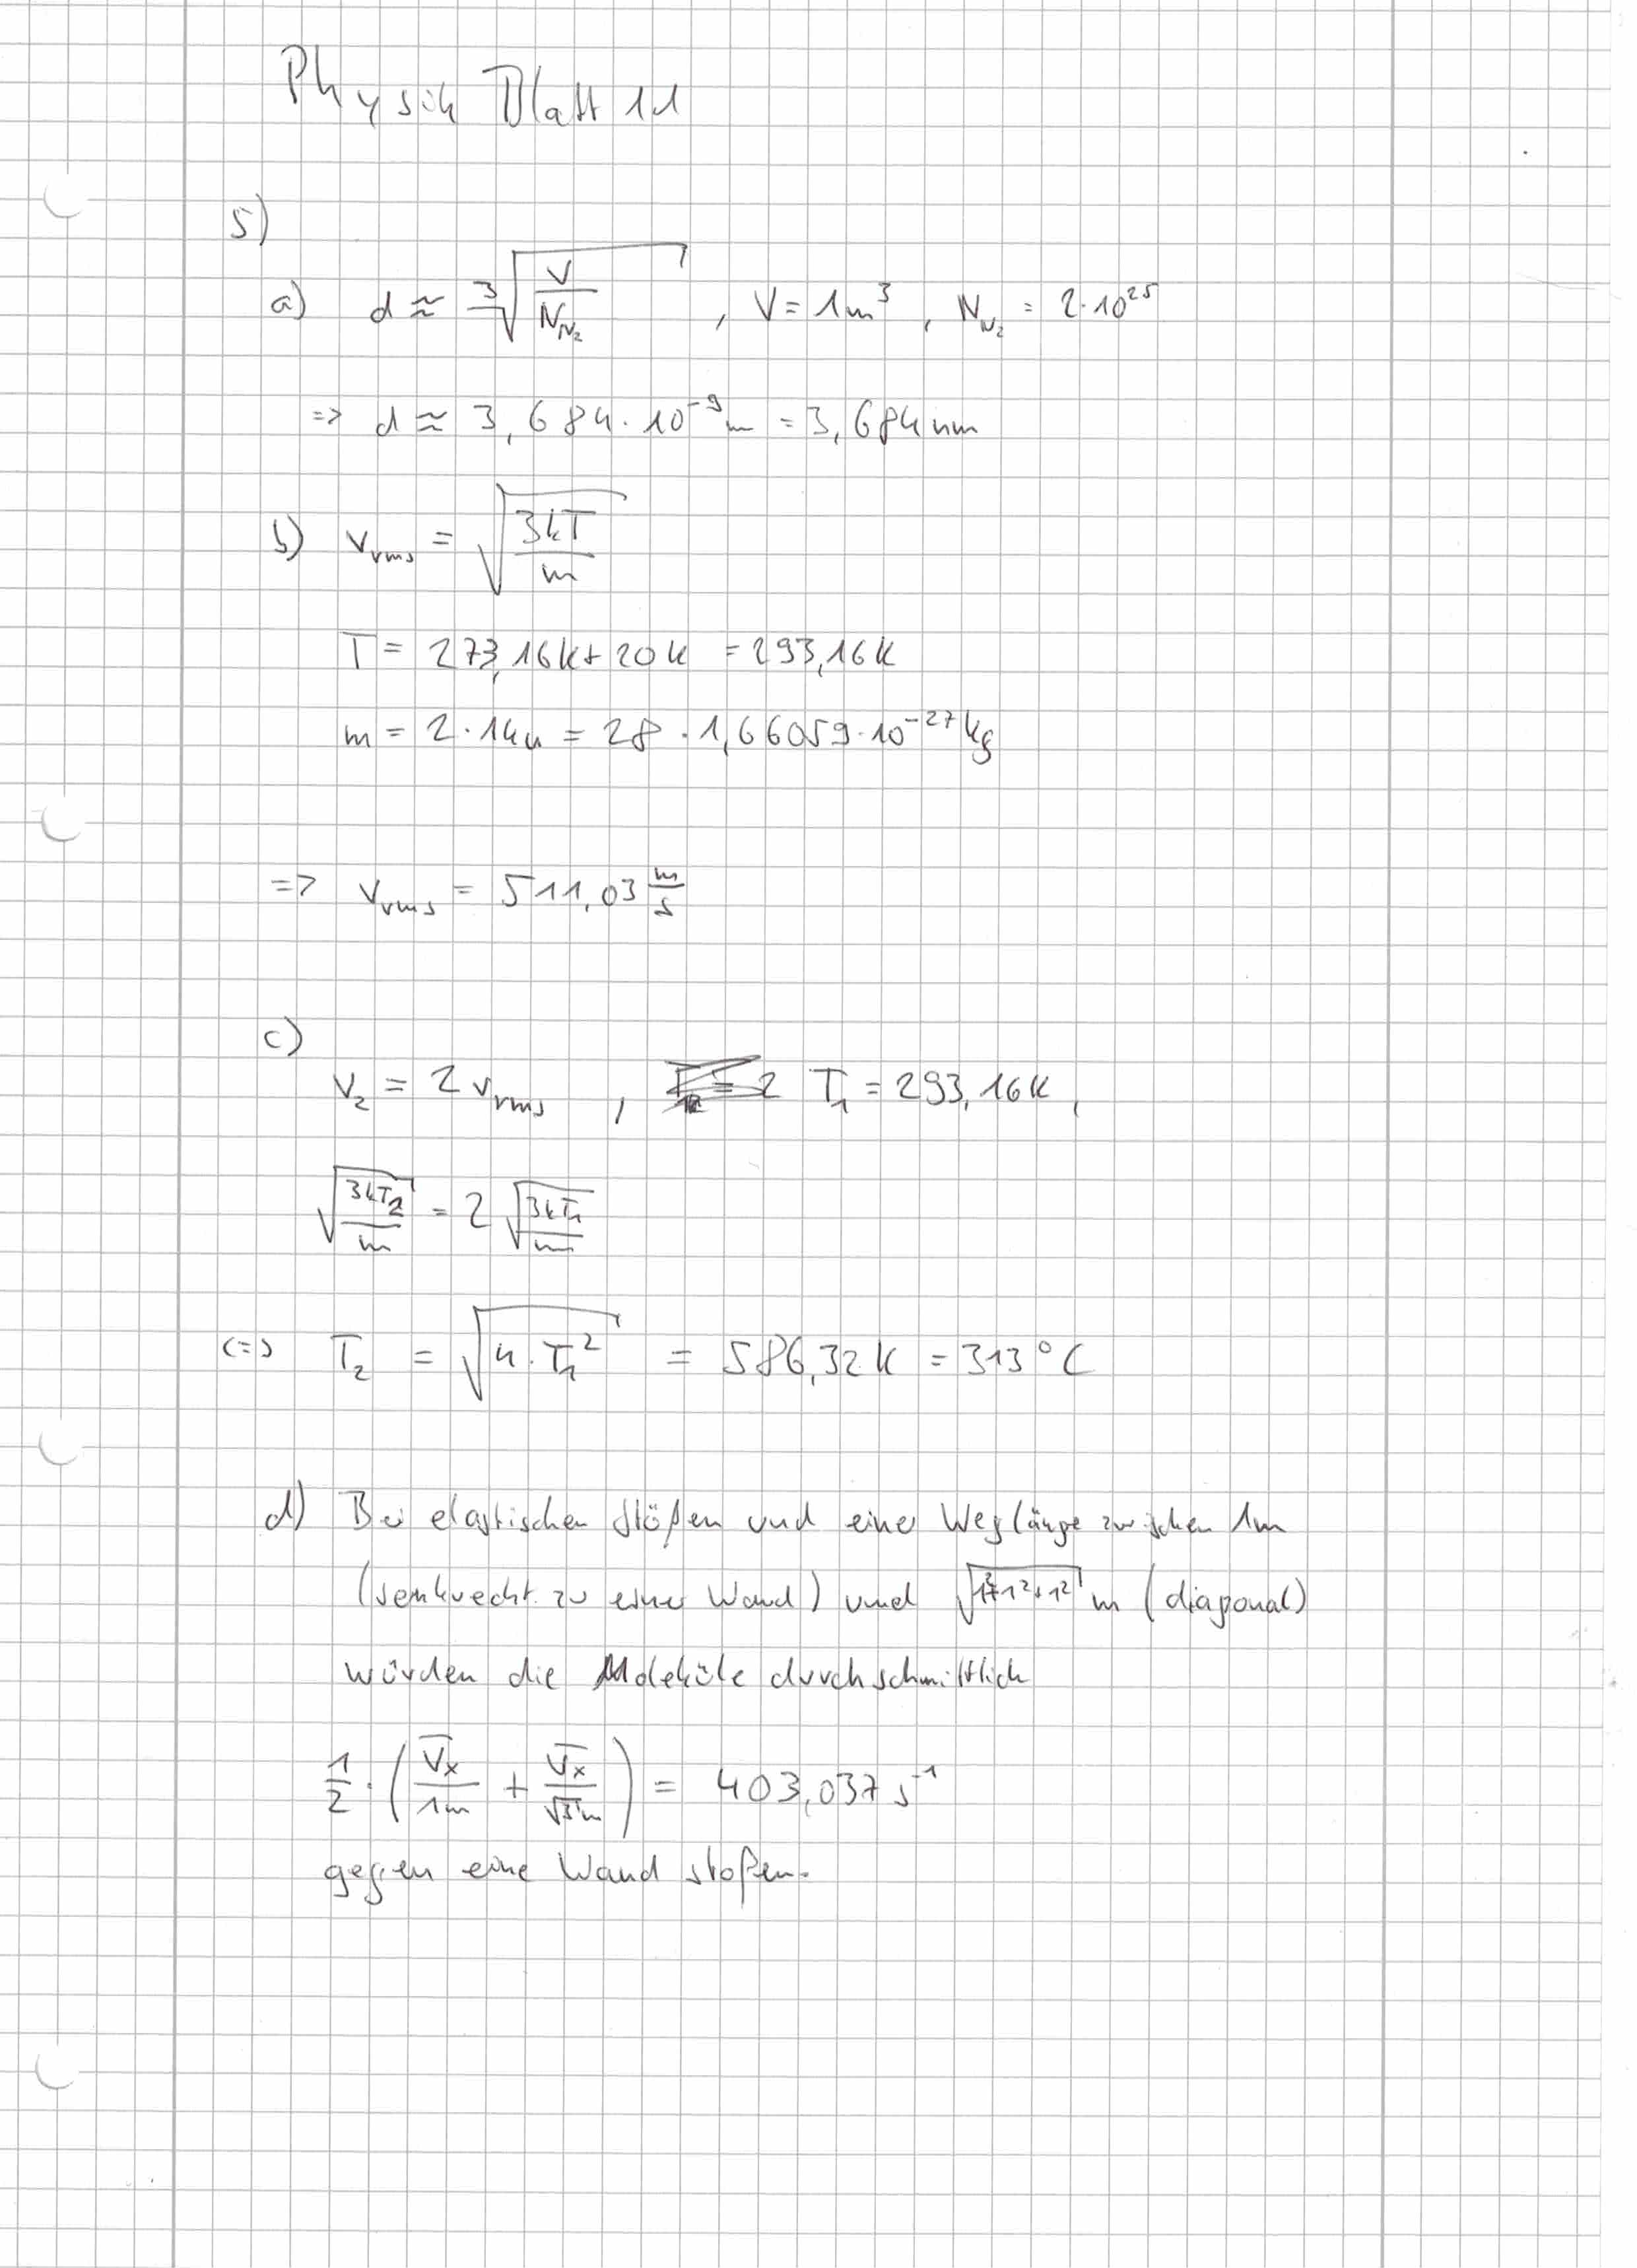 Physik Blatt 11
5)
a) d ≈ ∛(V/N_N₂) , V = 1m³ , N_N₂ = 2·10²⁵
=> d ≈ 3,684·10⁻⁹m = 3,684nm
b) v_rms = √(3kT/m)
T = 273,16K+20K = 293,16K
m = 2·14u = 28·1,66059·10⁻²⁷kg
=> v_rms = 511,03 m/s
c)
v₂ = 2v_rms , T₁ = 293,16K,
√(3kT₂/m) = 2√(3kT₁/m)
<=> T₂ = √(4·T₁²) = 586,32K = 313°C
d) Bei elastischen Stößen und einer Weglänge zwischen 1m
(senkrecht zu einer Wand) und √(1²+1²+1²) m (diagonal)
würden die Moleküle durchschnittlich
1/2·(v̄ₓ/1m + v̄ₓ/√3m) = 403,037s⁻¹
gegen eine Wand stoßen.